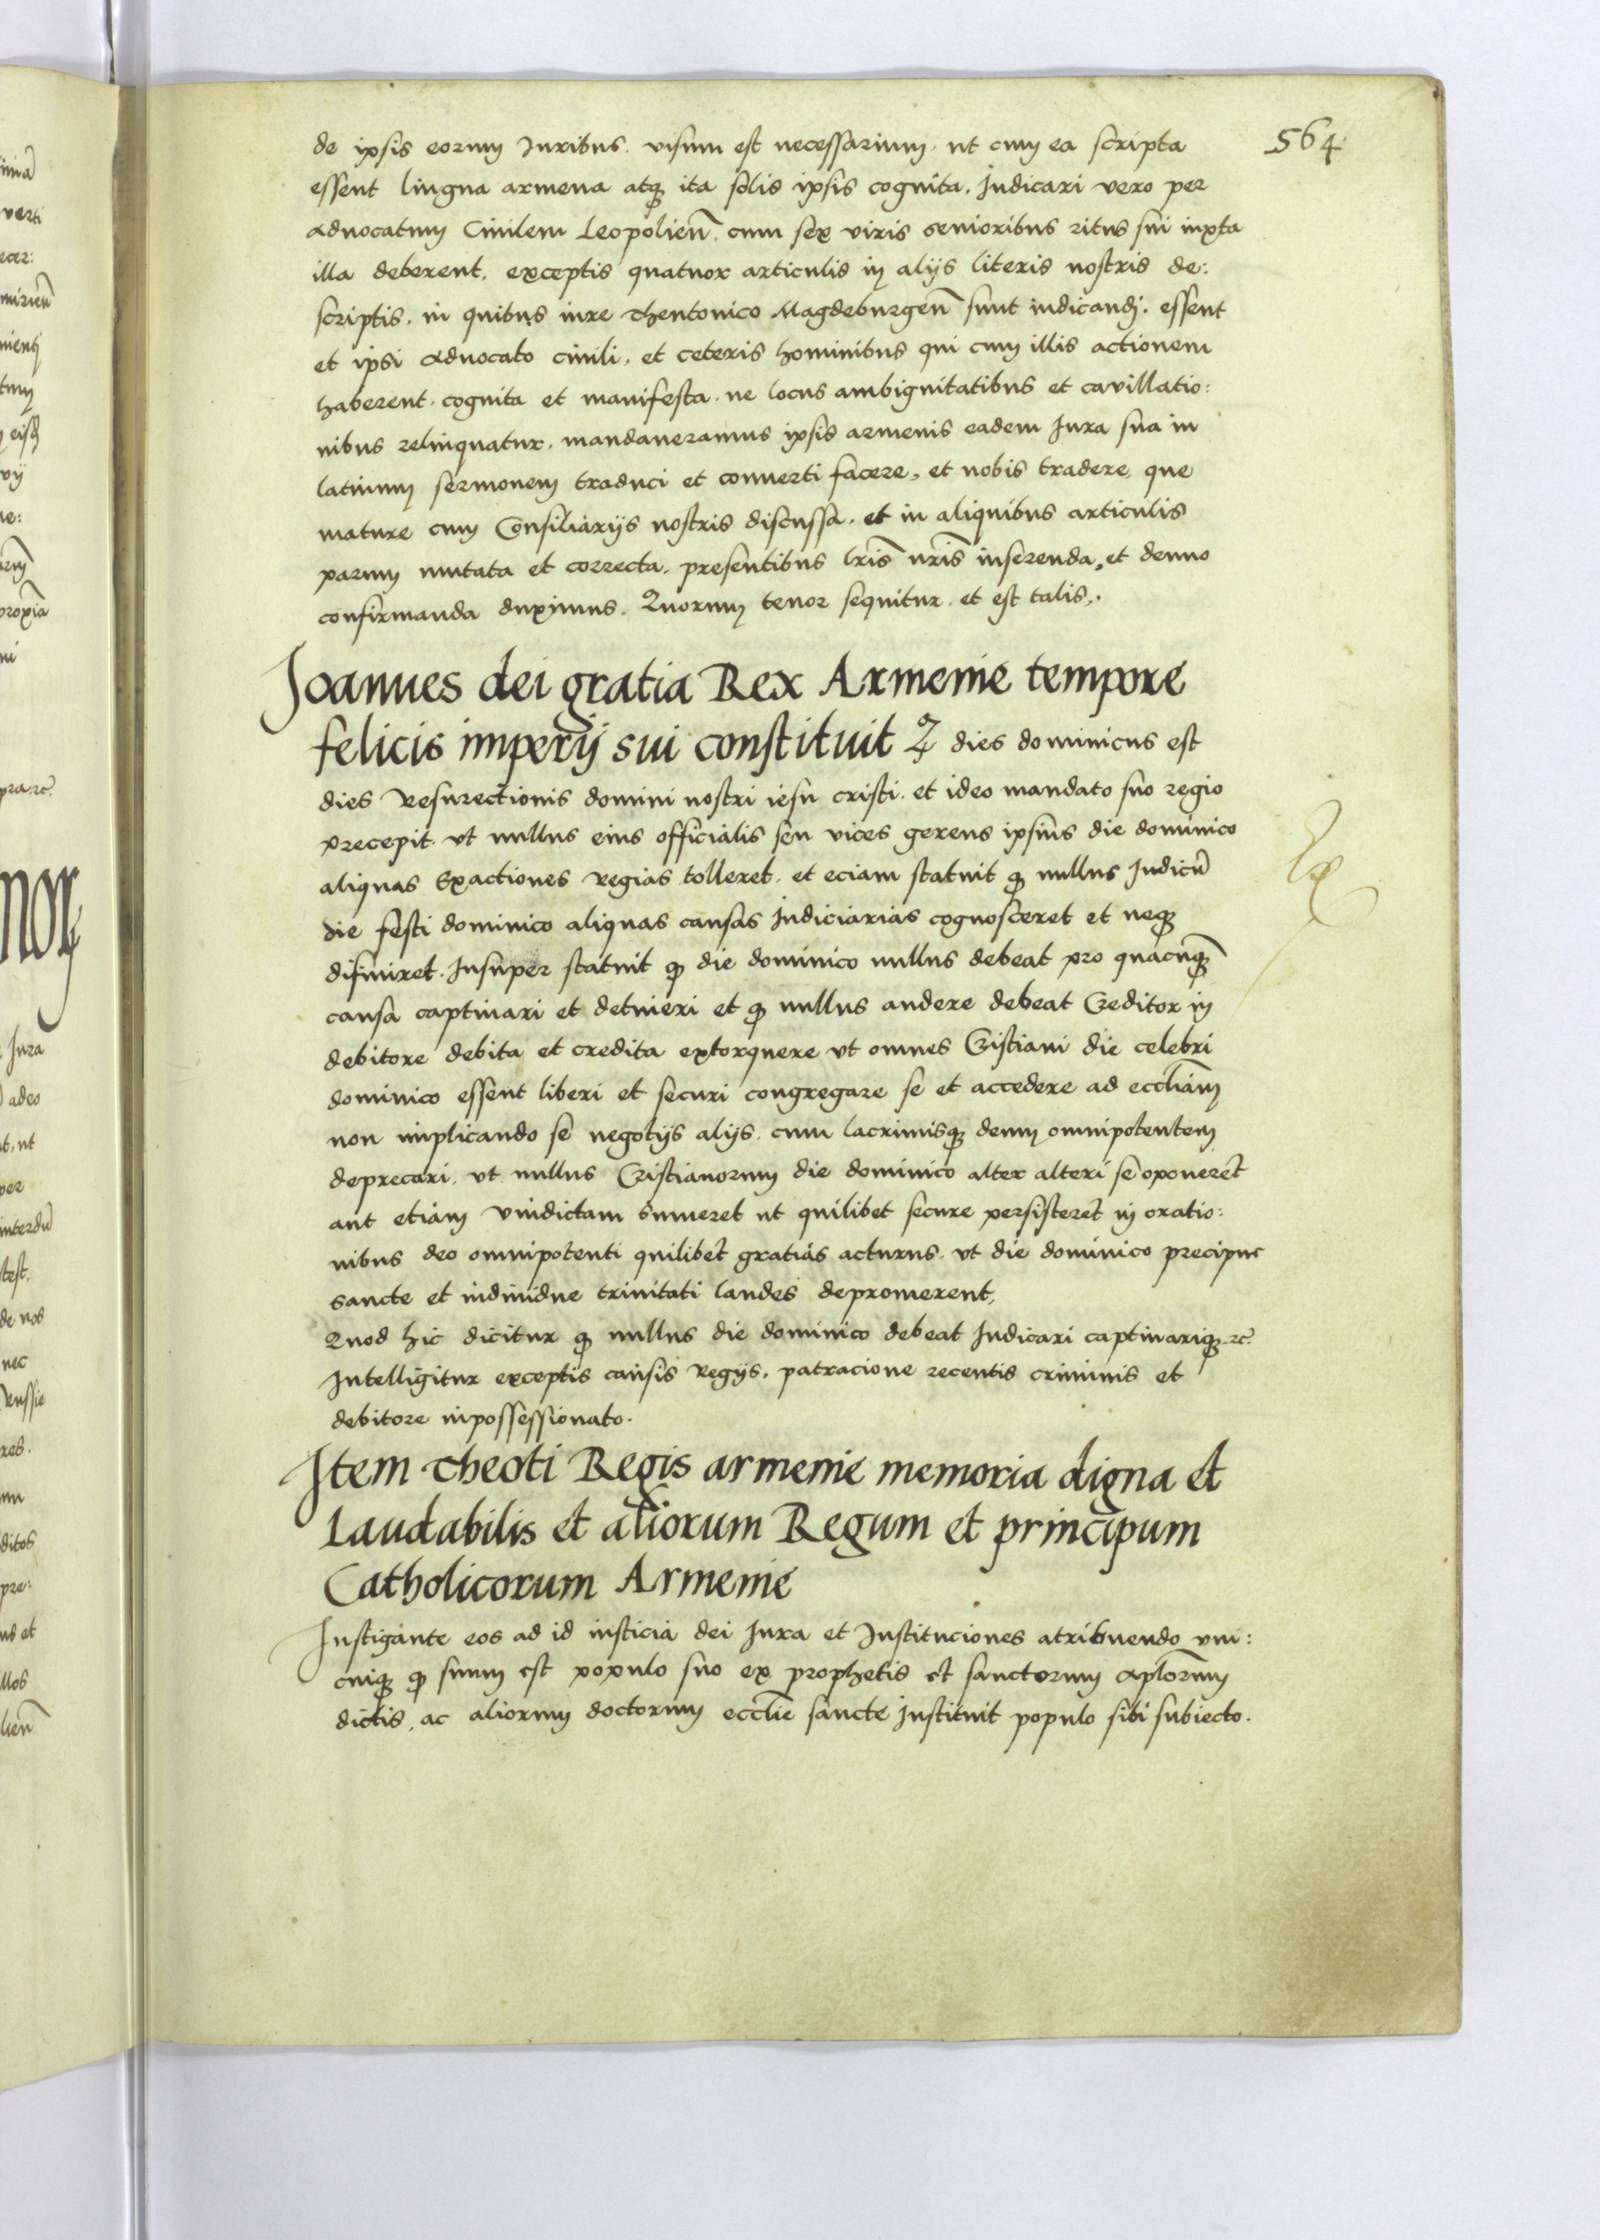 564
de ipsis eorum Iuribus. visum est necessarium. ut cum ea scripta
essent lingua armena atq̃ ita solis ipsis cognita. Iudicari vero per
Advocatum Civilem Leopolieñ. cum sex viris senioribus ritus sui iuxta
illa deberent. exceptis quatuor articulis in alijs literis nostris de:
scriptis. in quibus iure Theutonico Magdeburgeñ sunt iudicandi. essent
et ipsi Advocato civili. et ceteris hominibus qui cum illis actionem
haberent. cognita et manifesta. ne locus ambiguitatibus et cavillatio:
nibus relinquatur. mandaueramus ipsis armenis eadem Iura sua in
latinum sermonem traduci et conuerti facere, et nobis tradere, que
mature cum Consiliarijs nostris discussa. et in aliquibus articulis
parum mutata et correcta. presentibus lris̃ nris̃ inserenda, et denuo
confirmanda duximus. Quorum tenor sequitur. et est talis.
Joannes dei gratia Rex Armenie tempore
felicis imperij sui constituit q̃ dies dominicus est
dies Resurectionis domini nostri iesu cristi. et ideo mandato suo regio
precepit. ut nullus eius officialis seu vices gerens ipsius die dominico
aliquas Exactiones regias tolleret. et eciam statuit q̃ nullus Iudicũ
die festi dominico aliquas causas Iudiciarias cognosceret et neq̃
difiniret. Insuper statuit q̃ die dominico nullus debeat pro quacuq̃
causa captivari et detineri et q̃ nullus audere debeat Creditor in
debitore debita et credita extorquere ut omnes Cristiani die celebri
dominico essent liberi et securi congregare se et accedere ad eccliam̃
non implicando se negotijs alijs. cum lacrimisq̃ deum omnipotentem
deprecari. ut nullus Cristianorum die dominico alter alteri se oponeret
aut etiam vindictam sumeret ut quilibet secure persisteret in oratio:
nibus deo omnipotenti quilibet gratias acturus. ut die dominico precipue
sancte et individue trinitati laudes depromerent,
Quod hic dicitur q̃ nullus die dominico debeat Iudicari captivariq̃ .rc̃.
Intelligitur exceptis causis regijs. patracione recentis criminis et
debitore inpossessionato.
Item Theoti Regis armenie memoria digna et
Laudabilis et aliorum Regum et principum
Catholicorum Armenie
Instigante eos ad id iusticia dei Iura et Instituciones atribuendo uni:
cuiq̃ q̃ suum est populo suo ex prophetis et sanctorum aplorum̃
dictis, ac aliorum doctorum ecclie sancte Instituit populo sibi subiecto.